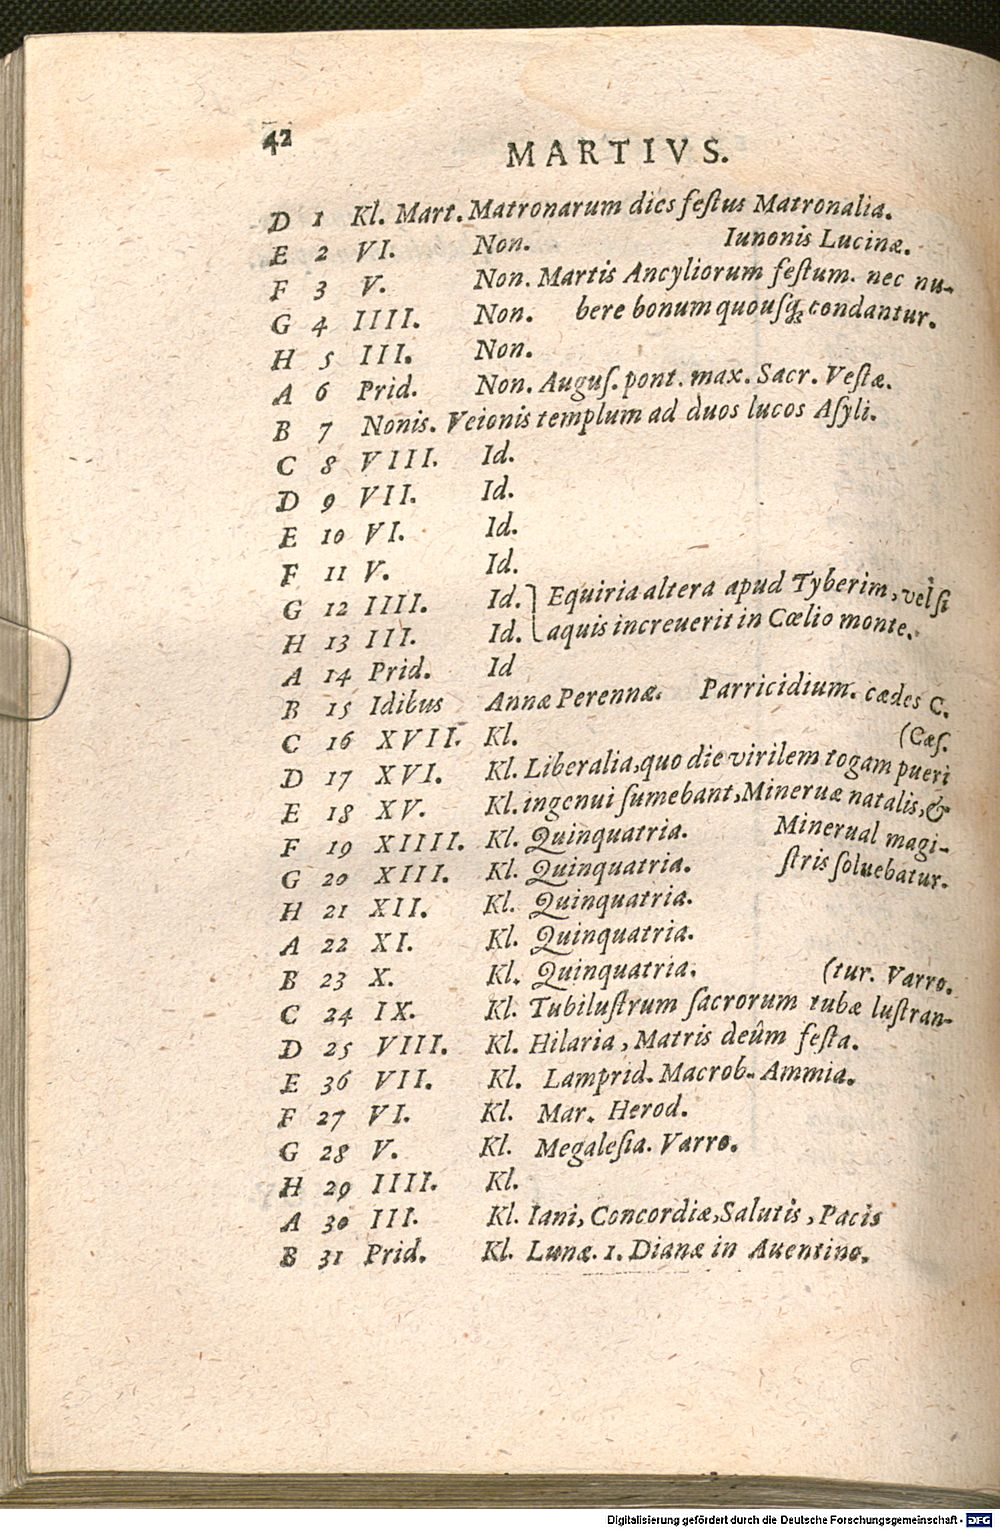 42
MARTIVS.
D 1 Kl. Mart. Matronarum dies feſtus Matronalia.
E 2 VI. Non. Iunonis Lucinæ.
F 3 V. Non. Martis Ancyliorum feſtum. nec nu-
G 4 IIII. Non. bere bonum quouſq; condantur.
H 5 III. Non.
A 6 Prid. Non. Auguſ. pont. max. Sacr. Veſtæ.
B 7 Nonis. Veionis templum ad duos lucos Aſyli.
C 8 VIII. Id.
D 9 VII. Id.
E 10 VI. Id.
F 11 V. Id.
G 12 IIII. Id. Equiria altera apud Tyberim, vel ſi
H 13 III. Id. aquis increuerit in Cœlio monte.
A 14 Prid. Id
B 15 Idibus Annæ Perennæ. Parricidium. cædes C.
C 16 XVII. Kl. (Cæſ.
D 17 XVI. Kl. Liberalia, quo die virilem togam pueri
E 18 XV. Kl. ingenui ſumebant, Mineruæ natalis, &
F 19 XIIII. Kl. Quinquatria. Minerual magi-
G 20 XIII. Kl. Quinquatria. ſtris ſoluebatur.
H 21 XII. Kl. Quinquatria.
A 22 XI. Kl. Quinquatria.
B 23 X. Kl. Quinquatria. (tur. Varro.
C 24 IX. Kl. Tubiluſtrum ſacrorum tubæ luſtran-
D 25 VIII. Kl. Hilaria, Matris deûm feſta.
E 36 VII. Kl. Lamprid. Macrob. Ammia.
F 27 VI. Kl. Mar. Herod.
G 28 V. Kl. Megaleſia. Varro.
H 29 IIII. Kl.
A 30 III. Kl. Iani, Concordiæ, Salutis, Pacis
B 31 Prid. Kl. Lunæ. 1. Dianæ in Auentino.
Digitalisierung gefördert durch die Deutsche Forschungsgemeinschaft - DFG